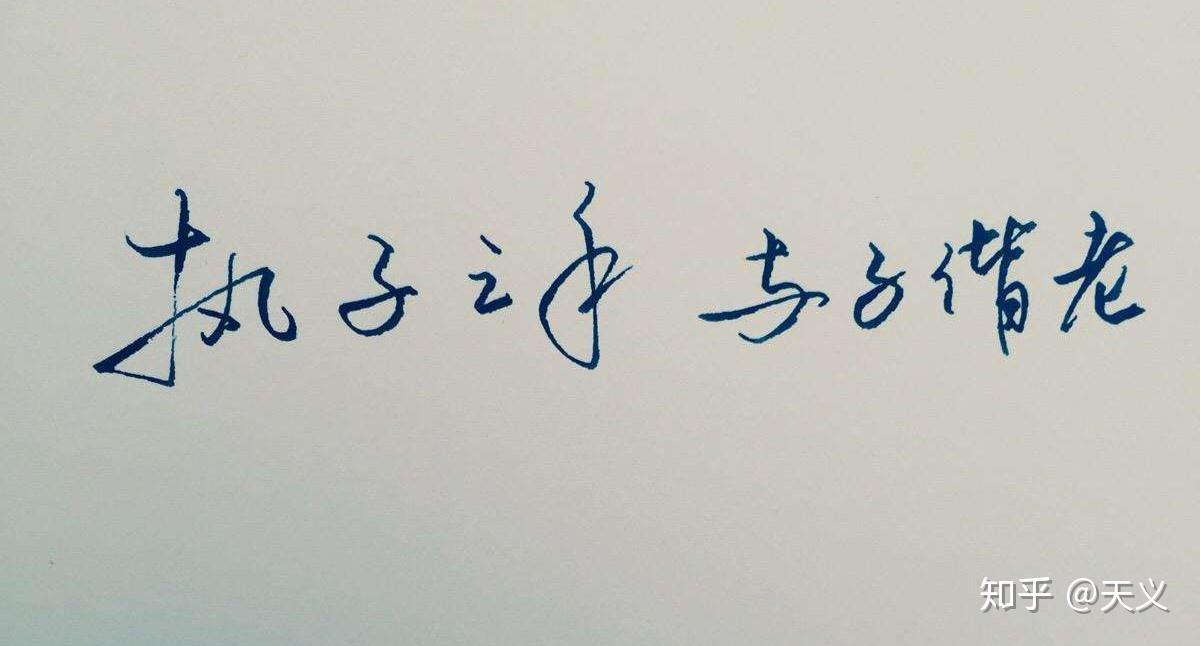 执子之手 与子偕老
知乎 @天义